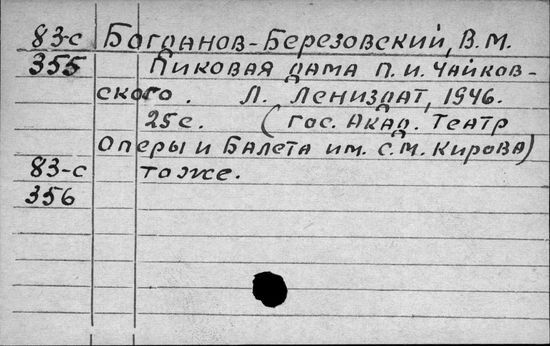 83-с Богданов-Березовский, В.М.
355 Пиковая дама П.И. Чайков-
ского. Л. Лениздат, 1946.
25с. (Гос. Акад. Театр
Оперы и Балета им. С.М. Кирова)
83-с То же.
356